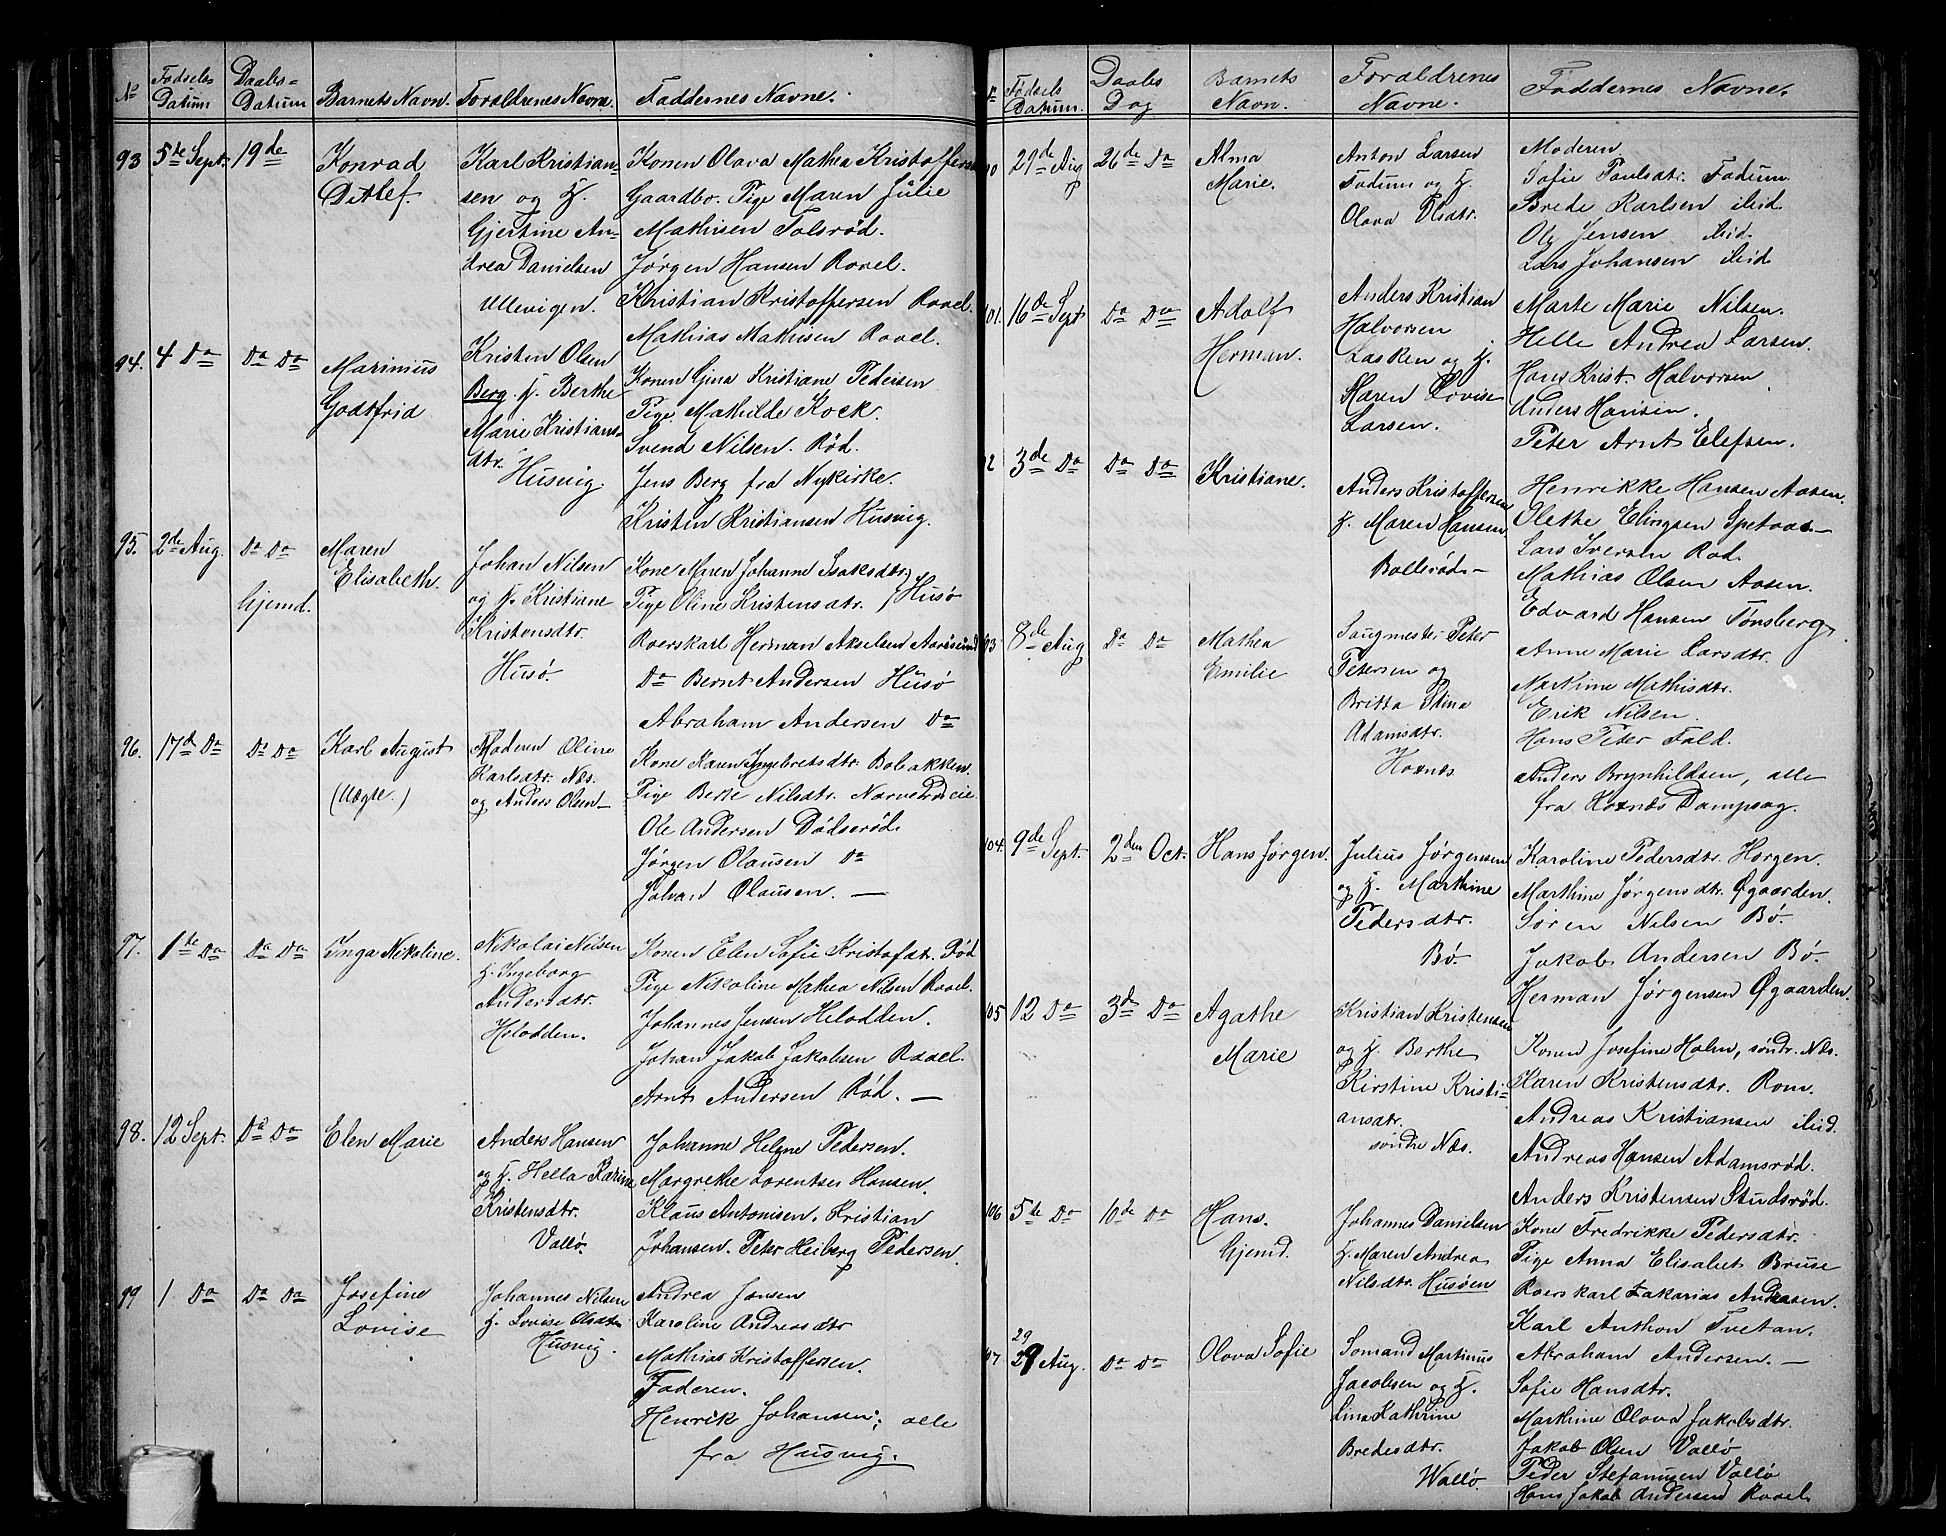 No
Fødsels-
Datum
Daabs-
Datum
Barnets Navn.
Forældrenes Navne.
Faddernes Navne.
93
5te Sept.
19de
Konrad
Ditlef.
Karl Kristian-
sen og H.
Gjertine An-
drea Danielsen
Ullevigen.
Konen Olava Mathea Kristoffersen
Gaardbo. Pige Maren Julie
Mathisen Tolsrød.
Jørgen Hansen Roael.
Kristian Kristoffersen Roael.
Mathias Mathisen Roael.
94.
4 Do
Do Do
Marinius
Godtfrid
Kristen Olsen
Berg. H. Berthe
Marie Kristians-
dtr.
Husvig.
Konen Gina Kristiane Pedersen
Pige Mathilde Kock.
Svend Nilsen. Rød.
Jens Berg fra Nykirke.
Kristen Kristiansen Husvig.
95.
2de Aug.
Do Do
Hjemd.
Maren
Elisabeth.
Johan Nilsen
og H. Kristiane
Kristensdtr.
Husø.
Kone Maren Johanne Isaksdtr.
Pige Oline Kristensdtr. } Husø
Roerskarl Herman Akselsen Aarøsund
Do Bernt Andersen Husø
Abraham Andersen Do
96.
17d Do
Do Do
Karl August
(Uægte.)
Moderen Oline
Karlsdtr. Næs.
og Anders Olsen—
Kone Karen Ingebretsdtr. Bobakken.
Pige Berte Nilsdtr.
Ole Andersen Dødserød.
Jørgen Olausen Do
Johan Olausen. —
97.
1te Do
Do Do
Inga Nikoline.
Nikolai Nilsen
H. Ingeborg
Andersdtr.
Helodden.
Konen Elen Sofie Kristofdtr. Rød
Pige Nikoline Mathea Nilsen Roael.
Johannes Jensen Helodden.
Johan Jakob Jakobsen Roael.
Arnt Andersen Rød. —
98.
12 Sept.
Do Do
Elen Marie
Anders Hansen
og H. Hella Karine
Kristensdtr.
Vallø.
Johanne Helene Pedersen.
Margrethe Lorentse Hansen.
Klaus Antonisen. Kristian
Johansen. Peter Heiberg Pedersen.
99
1 Do
Do Do
Josefine
Lovise
Johannes Nilsen
H. Lovise Olsdtr.
Husvig.
Andrea Jansen
Karoline Andreasdtr
Mathias Kristoffersen.
Faderen.
Henrik Johansen; alle
fra Husvig.
No
Fødsels
Datum.
Daabs
Dag
Barnets
Navn.
Forældrenes
Navne.
Faddernes Navne.
00
29de Aug
26de Do
Alma
Marie.
Anton Larsen
Fadum og H.
Olava Olsdtr.
Moderen
Sofie Paulsdtr. Fadum.
Brede Karlsen ibid.
Ole Jensen ibid.
Lars Johansen ibid
101.
16de Sept
Do Do
Adolf
Herman.
Anders Kristian
Halvorsen
Lasken og H.
Maren Lovise
Larsen.
Marte Marie Nilsen.
Helle Andrea Larsen.
Hans Krist. Halvorsen.
Anders Hansen.
Peter Arnt Elefsen.
02
3de Do
Do Do
Kristiane.
Anders Kristoffersen
H. Maren Hansen
Bollerød—
Henrikke Hansen Aasen.
Olethe Elingsen Spetaas—
Lars Iversen Rød.
Mathias Olsen Aasen.
Edvard Hansen Tønsberg
03
8de Aug
Do Do
Mathea
Emilie
Saugmester Peter
Petersen og
Britta Stina
Adamsdtr.
Hoxnæs
Anne Marie Larsdtr.
Mathine Mathisdtr.
Erik Nilsen.
Hans Peter Fald.
Anders Brynhildsen, alle
fra Hoxnæs Dampsag.
104.
9de Sept.
2den Oct.
Hans Jørgen.
Julius Jørgensen
og H. Marthine
Pedersdtr.
Bø.
Karoline Pedersdtr. Horgen.
Marthine Jørgensdtr. Øgaarden.
Søren Nilsen Bø.
Jakob Andersen Bø.
Herman Jørgensen Øgaarden.
05
12 Do
3d Do
Agathe
Marie
Kristian Kristensen
og H. Berthe
Kirstine Kristi-
ansdtr.
søndre Næs.
Konen Josefine Holm, søndr. Næs.
Karen Kristensdtr. Rom.
Andreas Kristiansen ibid.
Andreas Hansen Adamsrød.
Anders Kristensen Studsrød.
106
5te Do
10de Do
Hans.
Hjemd.
Johannes Danielsen
H. Maren Andrea
Nilsdtr. Husøen
Kone Fredrikke Pedersdtr.
Pige Anna Elisabet Bruse
Roerskarl Zakarias Andreasen.
Karl Anthon Tvetan.
Abraham Andersen. —
07
29
29 Aug.
Do Do
Olava Sofie
Sømand Martinus
Jacobsen og H.
Lina Kathrine
Bredesdtr.
Wallø.
Sofie Hansdtr.
Marthine Olava Jakobsdtr.
Jakob Olsen Vallø
Peder Stefanusen Vallø
Hans Jakob Andersen Roael